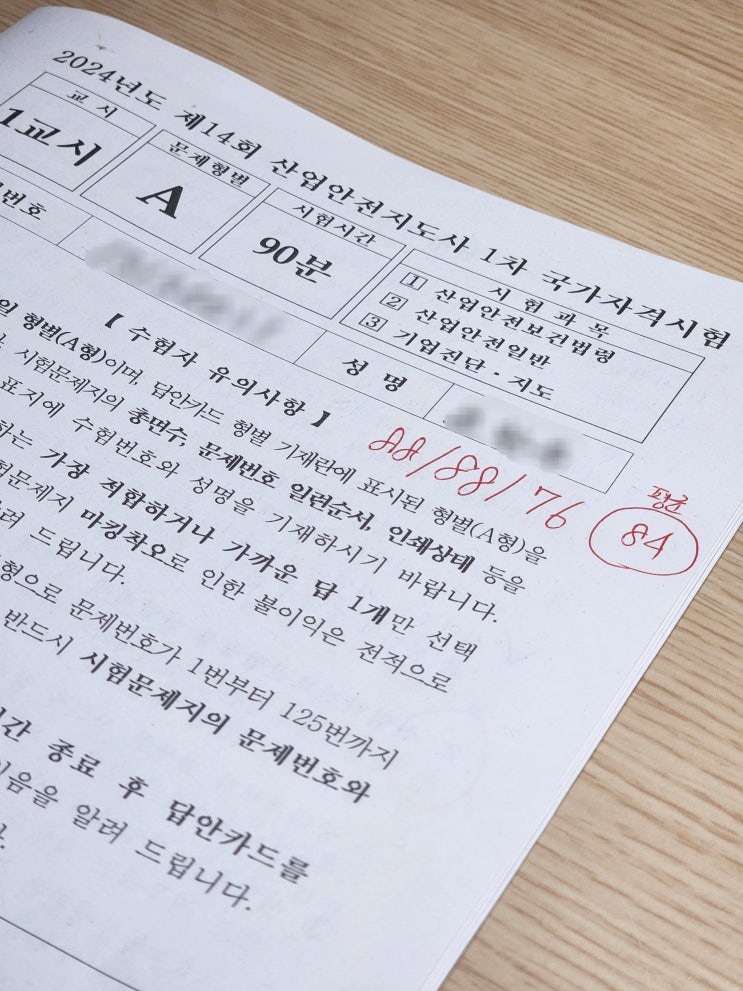 2024년도 제14회 산업안전지도사 1차 국가자격시험
교 시
1교시
문제형별
A
시험시간
90분
시 험 과 목
1 산업안전보건법령
2 산업안전일반
3 기업진단 · 지도
번호
성 명
【 수험자 유의사항 】
형별(A형)이며, 답안카드 형별 기재란에 표시된 형별(A형)을
시험문제지의 총면수, 문제번호 일련순서, 인쇄상태 등을
표지에 수험번호와 성명을 기재하시기 바랍니다.
하는 가장 적합하거나 가까운 답 1개만 선택
험문제지 마킹착오로 인한 불이익은 전적으로
려 드립니다.
형으로 문제번호가 1번부터 125번까지
반드시 시험문제지의 문제번호와
간 종료 후 답안카드를
음을 알려 드립니다.
88/88/76
평균
84